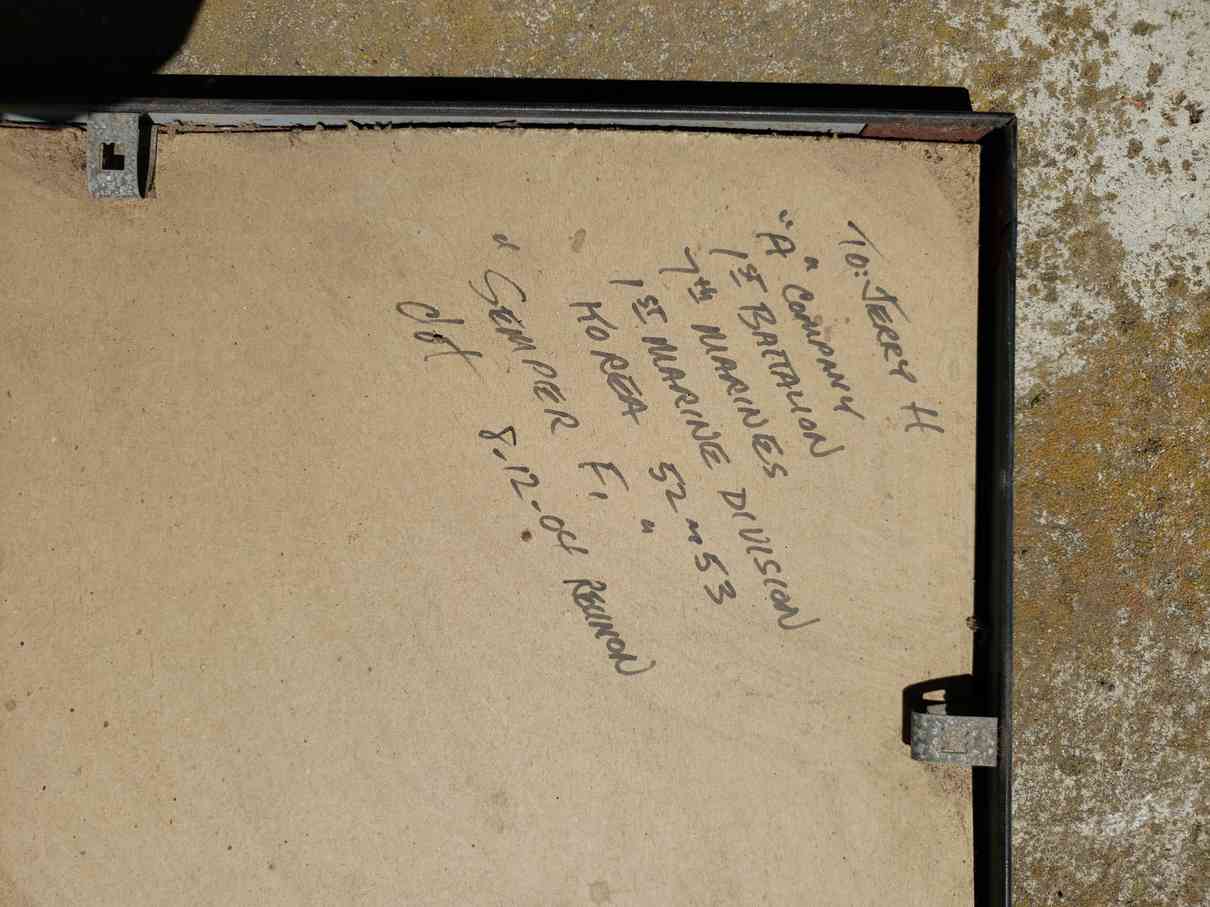 TO: JERRY H
"A" COMPANY
1ST BATTALION
7th MARINES
1ST MARINE DIVISION
KOREA 52 ~ 53
" SEMPER Fi "
8-12-04 REUNON